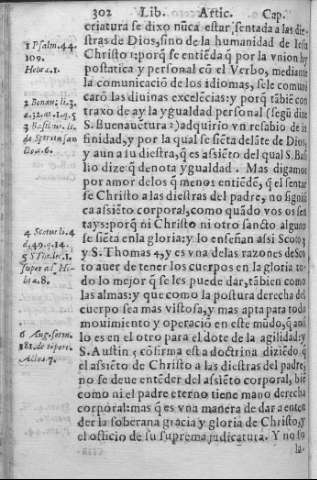 302 Lib. Artic. Cap.
criatura se dixo nũca estar sentada a las die-
stras de Dios, sino de la humanidad de Iesu
Christo 1: porq̃ se entiẽda q̃ por la vnion hy-
postatica y personal cõ el Verbo, mediante
la comunicaciõ de los idiomas, se le comuni-
carõ las diuinas excelẽcias: y porq̃ tãbiẽ con
traxo de ay la ygualdad personal (segũ dize
S. Buenauẽtura 2) adquirio vn resabio de in
finidad, y por la qual se siẽta delãte de Dios,
y aun a su diestra, q̃ es assiẽto del qual S. Basi
lio dize: q̃ denota ygualdad. Mas digamos
por amor de los q̃ menos entiẽdẽ, q̃ el sentar
se Christo a las diestras del padre, no signifi
ca assiẽto corporal, como quãdo vos os sen
tays: porq̃ ni Christo ni otro sancto alguno
se siẽta en la gloria: y lo enseñan assi Scoto 3
y S. Thomas 4, y es vna de las razones de Sco
to auer de tener los cuerpos en la gloria to-
do lo mejor q̃ se les puede dar, tãbien como
las almas: y que como la postura derecha del
cuerpo sea mas vistosa, y mas apta para todo
mouimiento y operació en este mũdo, q̃ ansi
lo es en el otro para el dote de la agilidad: y
S. Austin 5 cõfirma esta doctrina diziẽdo, q̃
el assiẽto de Christo a las diestras del padre,
no se deue entẽder del assiẽto corporal, biẽ
como ni el padre eterno tiene mano derecha
corporal: mas q̃ es vna manera de dar a enten
der la soberana gracia y gloria de Christo, y
el officio de su suprema judicatura. Y no so
la-
1 Psalm. 44.
109.
Hebr. 1.
2 Bonau. li. 3.
3 Basil.
4 Scotus li. 4
d. 49. q. 14.
5 S. Tho.
6 Aug. serm.
181. de tẽpore.
Actor. 7.